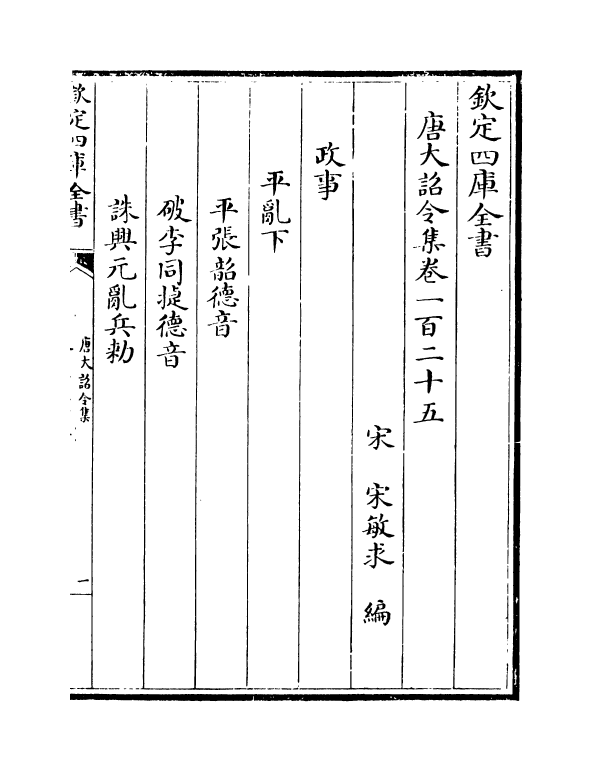 欽定四庫全書
唐大詔令集卷一百二十五
宋 宋敏求 編
政事
平亂下
平張韶德音
破李同㨗德音
誅興元亂兵勅
欽定四庫全書
唐大詔令集